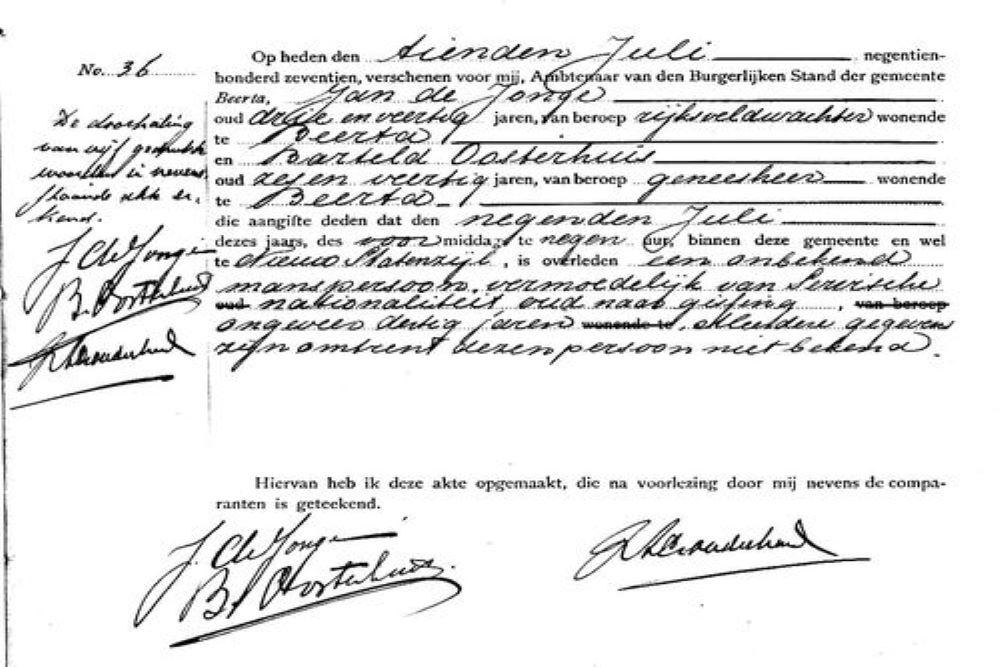 No. 36
De doorhaling
van vijf gedrukte
woorden in nevens
staande akte er-
kend.
J. de Jonge
B. Oosterhuis
Op heden den tienden Juli negentien-
honderd zeventien, verschenen voor mij, Ambtenaar van den Burgerlijken Stand der gemeente
Beerta, Jan de Jonge
oud drie en veertig jaren, van beroep rijksveldwachter wonende
te Beerta
en Barteld Oosterhuis
oud zes en veertig jaren, van beroep geneesheer wonende
te Beerta
die aangifte deden dat den negenden Juli
dezes jaars, des voormiddags te negen uur, binnen deze gemeente en wel
te Nieuw Statenzijl, is overleden een onbekend
manspersoon, vermoedelijk van Servische
oud nationaliteit, oud naar gissing, van beroep
ongeveer dertig jaren wonende te. Meerdere gegevens
zijn omtrent dezen persoon niet bekend.
Hiervan heb ik deze akte opgemaakt, die na voorlezing door mij nevens de compa-
ranten is geteekend.
J. de Jonge
B. Oosterhuis